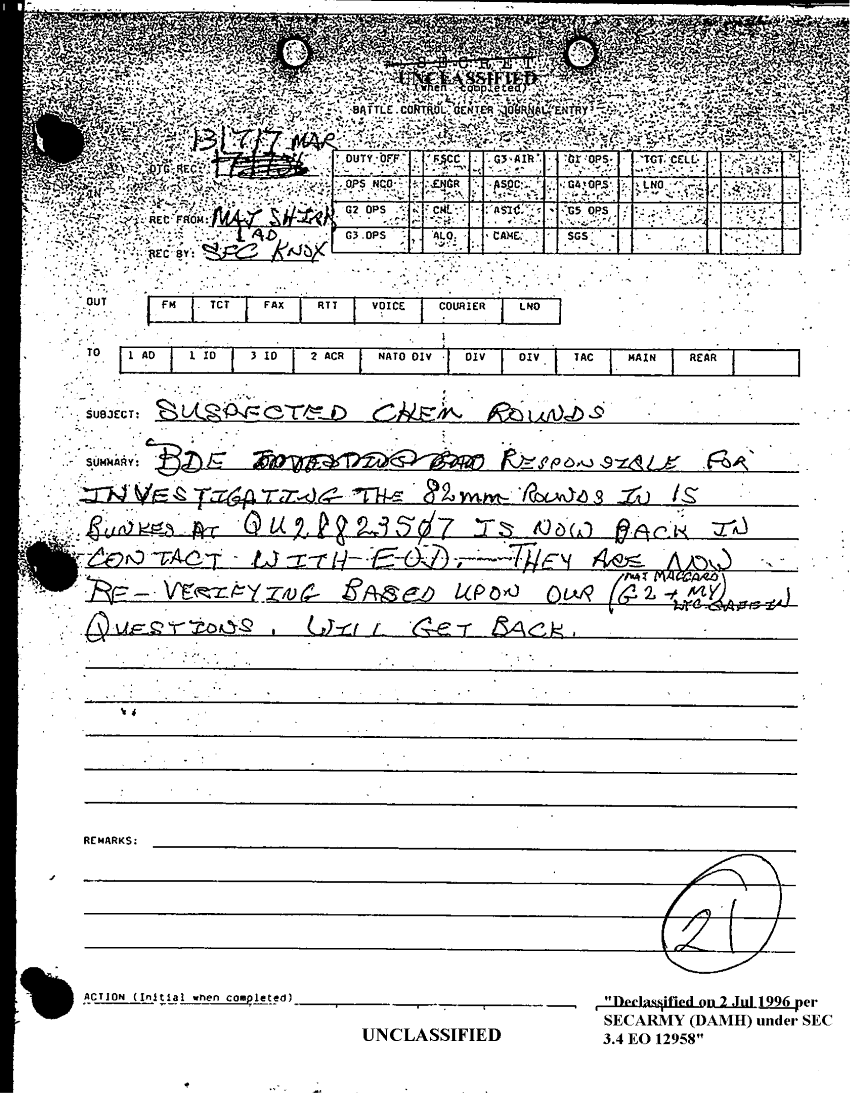 SECRET
UNCLASSIFIED
(when completed)
BATTLE CONTROL CENTER JOURNAL ENTRY
MAR
DTG REC:
REC FROM: MAJ SHIRK
1 AD
REC BY: SFC KNOX
DUTY OFF FSCC G3 AIR G1 OPS TGT CELL
OPS NCO ENGR ASOC G4 OPS LNO
G2 OPS CML ASIC G5 OPS
G3 OPS ALO CAME SGS
OUT FM TCT FAX RTT VOICE COURIER LNO
TO 1 AD 1 ID 3 ID 2 ACR NATO DIV DIV DIV TAC MAIN REAR
SUBJECT: SUSPECTED CHEM ROUNDS
SUMMARY: BDE RESPONSIBLE FOR
INVESTIGATING THE 82mm ROUNDS IN 15
BUNKES AT QU28823507 IS NOW BACK IN
CONTACT WITH EOD. THEY ARE NOW
RE-VERIFYING BASED UPON OUR (G2 + MY)
(MAJ MACCARD
QUESTIONS. WILL GET BACK.
REMARKS:
21
ACTION (Initial when completed)
"Declassified on 2 Jul 1996 per
SECARMY (DAMH) under SEC
3.4 EO 12958"
UNCLASSIFIED